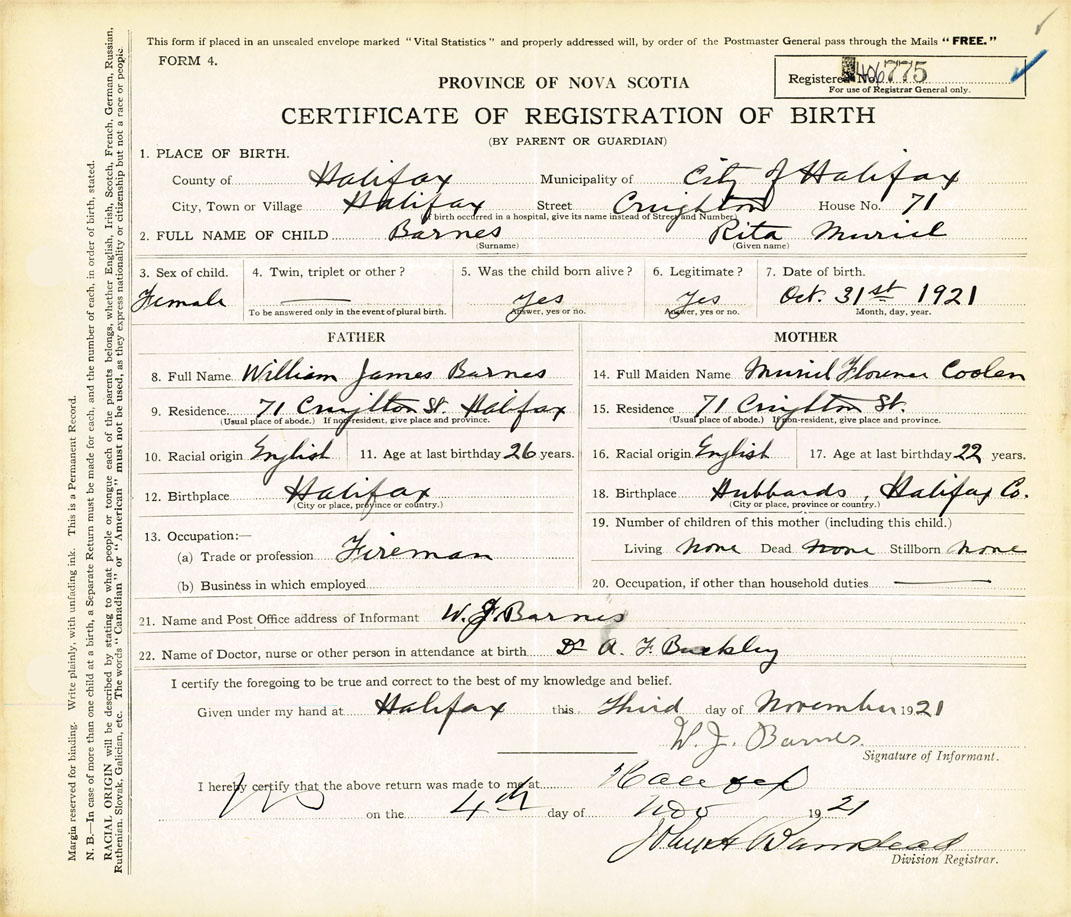 This form if placed in an unsealed envelope marked "Vital Statistics" and properly addressed will, by order of the Postmaster General pass through the Mails "FREE."
FORM 4.
Registered No. 775
For use of Registrar General only.
PROVINCE OF NOVA SCOTIA
CERTIFICATE OF REGISTRATION OF BIRTH
(BY PARENT OR GUARDIAN)
1. PLACE OF BIRTH.
County of Halifax Municipality of City of Halifax
City, Town or Village Halifax Street Creighton House No. 71
(If birth occurred in a hospital, give its name instead of Street and Number)
2. FULL NAME OF CHILD Barnes Rita Muriel
(Surname) (Given name)
3. Sex of child. 4. Twin, triplet or other? 5. Was the child born alive? 6. Legitimate? 7. Date of birth.
Female Yes Yes Oct. 31st 1921
To be answered only in the event of plural birth. Answer, yes or no. Answer, yes or no. Month, day, year.
FATHER MOTHER
8. Full Name William James Barnes 14. Full Maiden Name Muriel Florence Coolen
9. Residence 71 Creighton St. Halifax 15. Residence 71 Creighton St.
(Usual place of abode.) If non-resident, give place and province. (Usual place of abode.) If non-resident, give place and province.
10. Racial origin English 11. Age at last birthday 26 years. 16. Racial origin English 17. Age at last birthday 22 years.
12. Birthplace Halifax 18. Birthplace Hubbards, Halifax Co.
(City or place, province or country.) (City or place, province or country.)
13. Occupation:— 19. Number of children of this mother (including this child.)
(a) Trade or profession Fireman Living None Dead None Stillborn None
(b) Business in which employed 20. Occupation, if other than household duties
21. Name and Post Office address of Informant W. J. Barnes
22. Name of Doctor, nurse or other person in attendance at birth Dr A. F. Buckley
I certify the foregoing to be true and correct to the best of my knowledge and belief.
Given under my hand at Halifax this Third day of November 1921
W. J. Barnes
Signature of Informant.
I hereby certify that the above return was made to me at Halifax
on the 4th day of Nov 1921
Division Registrar.
Margin reserved for binding. Write plainly, with unfading ink. This is a Permanent Record.
N. B.—In case of more than one child at a birth, a Separate Return must be made for each, and the number of each, in order of birth, stated.
RACIAL ORIGIN will be described by stating to what people or tongue each of the parents belongs, whether English, Irish, Scotch, French, German, Russian,
Ruthenian, Slovak, Galician, etc. The words "Canadian" or "American" must not be used, as they express nationality or citizenship but not a race or people.